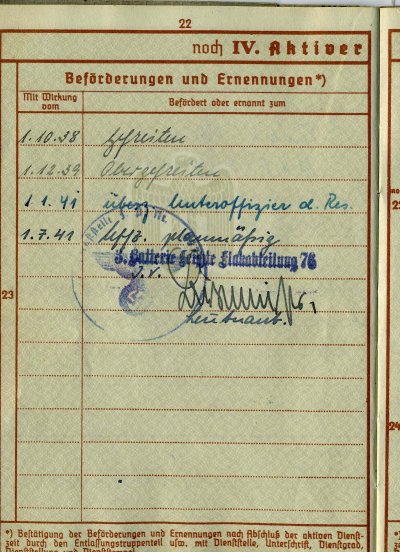 22
noch IV. Aktiver
Beförderungen und Ernennungen*)
Mit Wirkung vom
Befördert oder ernannt zum
1.10.38 Gefreiten
1.12.39 Obergefreiten
1.1.41 überz. Unteroffizier d. Res.
1.7.41 Uffz. planmäßig
3. Batterie Leichte Flakabteilung 76
J.V.
Leutnant.
23
24
*) Bestätigung der Beförderungen und Ernennungen nach Abschluß der aktiven Dienst-
zeit durch den Entlassungstruppenteil usw. mit Dienststelle, Unterschrift, Dienstgrad,
Dienststellung und Dienststempel